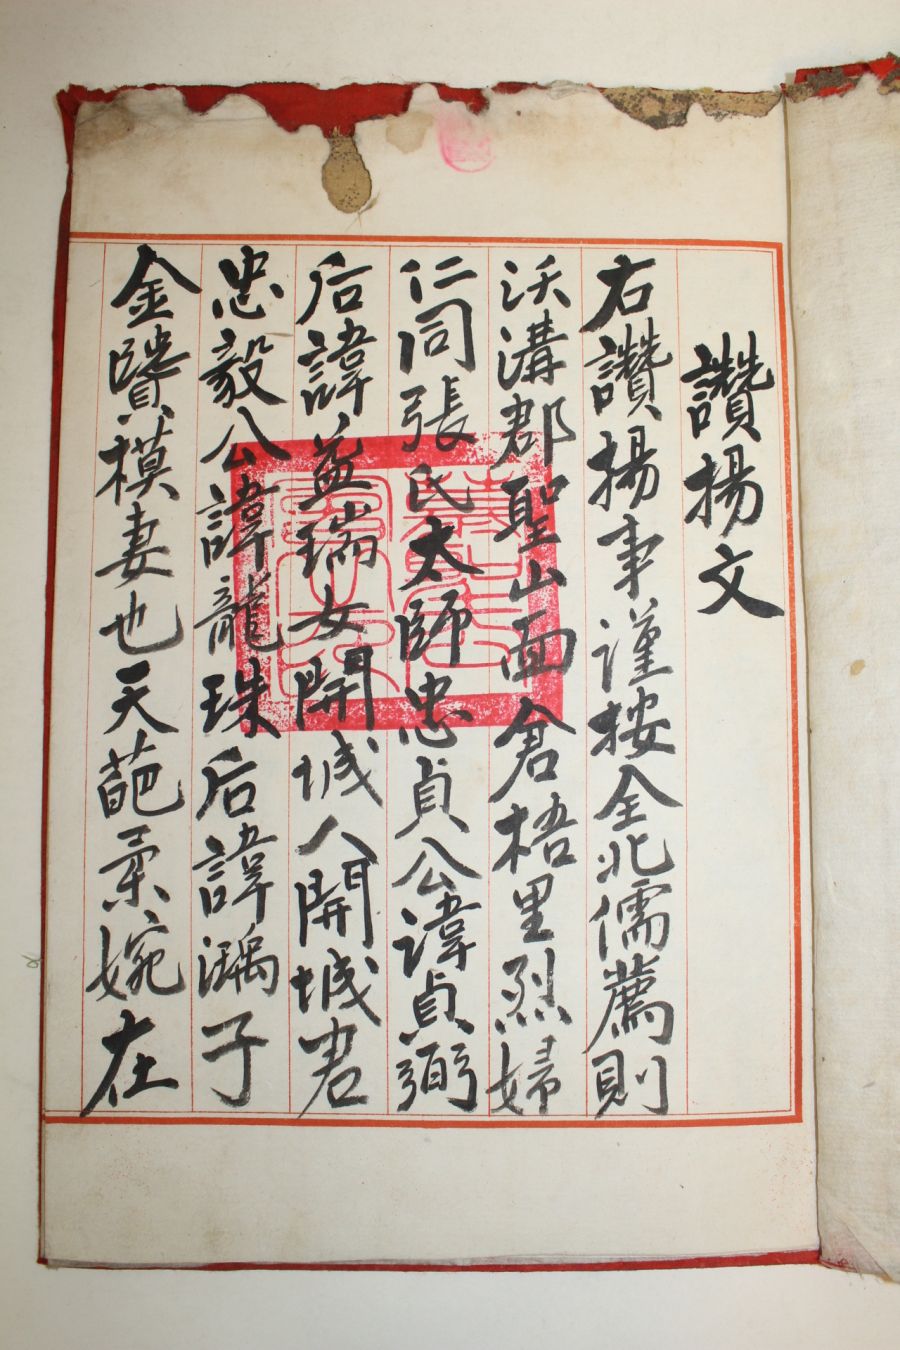 讚揚文
右讚揚事謹按全北儒薦則
沃溝郡聖山面倉梧里烈婦
仁同張氏太師忠貞公諱貞弼
后諱益瑞女開城人開城君
忠毅公諱龍珠后諱漹子
金贇模妻也天葩柔婉在